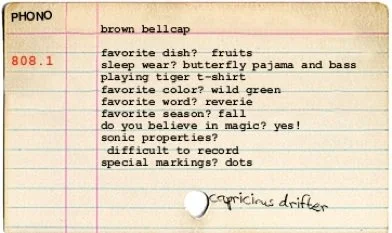 PHONO
brown bellcap
808.1
favorite dish? fruits
sleep wear? butterfly pajama and bass
playing tiger t-shirt
favorite color? wild green
favorite word? reverie
favorite season? fall
do you believe in magic? yes!
sonic properties?
difficult to record
special markings? dots
capricius drifter